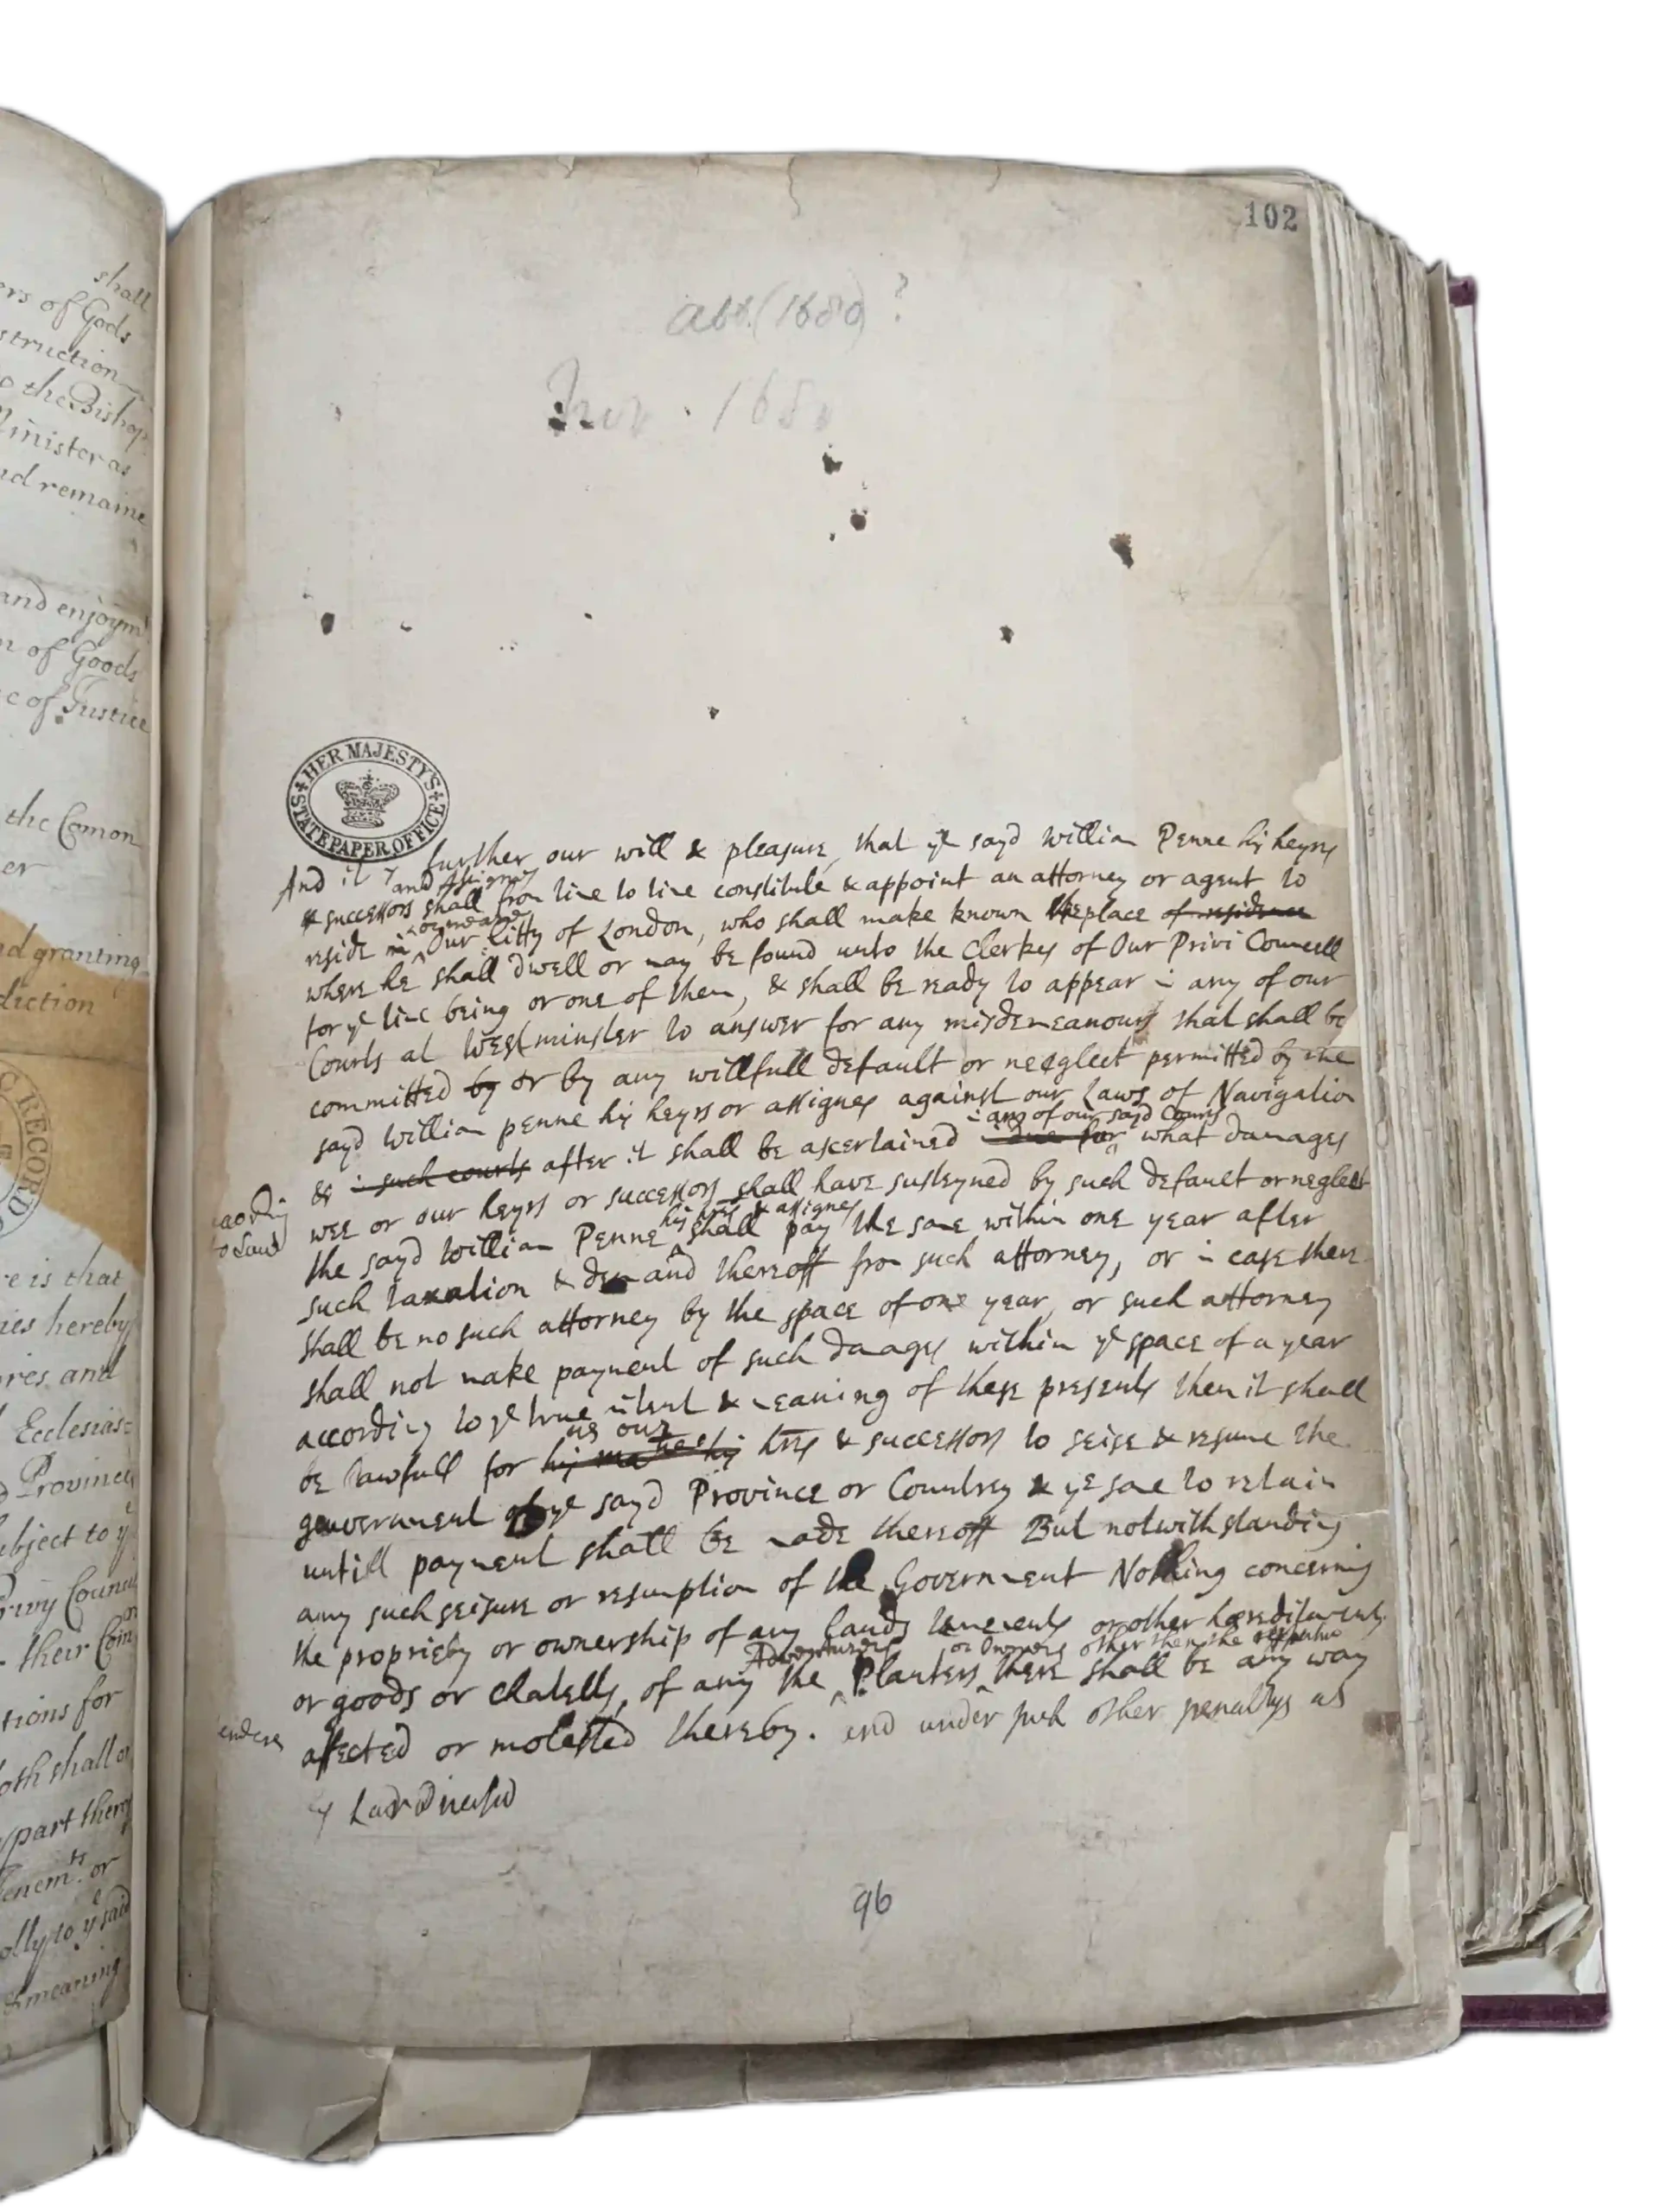 shall
ers of Gods
struction
o the Bishop
Minister as
nd remaine
and enjoym
n of Goods
c of Justice
the Comon
er
nd granting
diction
RECORD
re is that
ies hereby
res and
Ecclesias:
Province
ubject to yᵉ
Privy Counc
their Com
or
tions for
oth shall or
part there
Tenemᵗˢ or
olly to yᵉ said
meaning
102
abt. (1680) ?
Nov. 1680
HER MAJESTY'S
STATE PAPER OFFICE
And it is further our will & pleasure, that yᵉ sayd William Penne his heyrs
and Assignes
& successors shall from time to time constitute & appoint an attorney or agent to
or neare
reside in Our Citty of London, who shall make known the place of residence
where he shall dwell or may be found unto the Clerkes of Our Privi Councell
for yᵉ time being or one of them, & shall be ready to appear in any of our
Courts at Westminster to answer for any misdemeanours that shall be
committed by or by any willfull default or neglect permitted by the
sayd William penne his heyrs or assignes against our Laws of Navigation
in any of our sayd Courts
& in such courts after it shall be ascertained what damages
according
to Law
wee or our heyrs or successors shall have susteyned by such default or neglect
his heyrs & assignes
the sayd William Penne shall pay the same within one year after
such taxation & demand thereoff from such attorney, or in case there
shall be no such attorney by the space of one year, or such attorney
shall not make payment of such damages within yᵉ space of a year
according to yᵉ true intent & meaning of these presents then it shall
us our
be lawfull for his maᵗⁱᵉˢ his heyrs & successors to seise & resume the
gouvernment of yᵉ sayd Province or Countrey & yᵉ same to retain
untill payment shall be made thereoff But notwithstanding
any such seisure or resumption of the Government Nothing concerning
the propriety or ownership of any lands tenements or other hæreditaments
Adventurers or Owners other then the respective
or goods or chatells, of any the Planters there shall be any way
affected or molested thereby. and under such other penaltys as
96